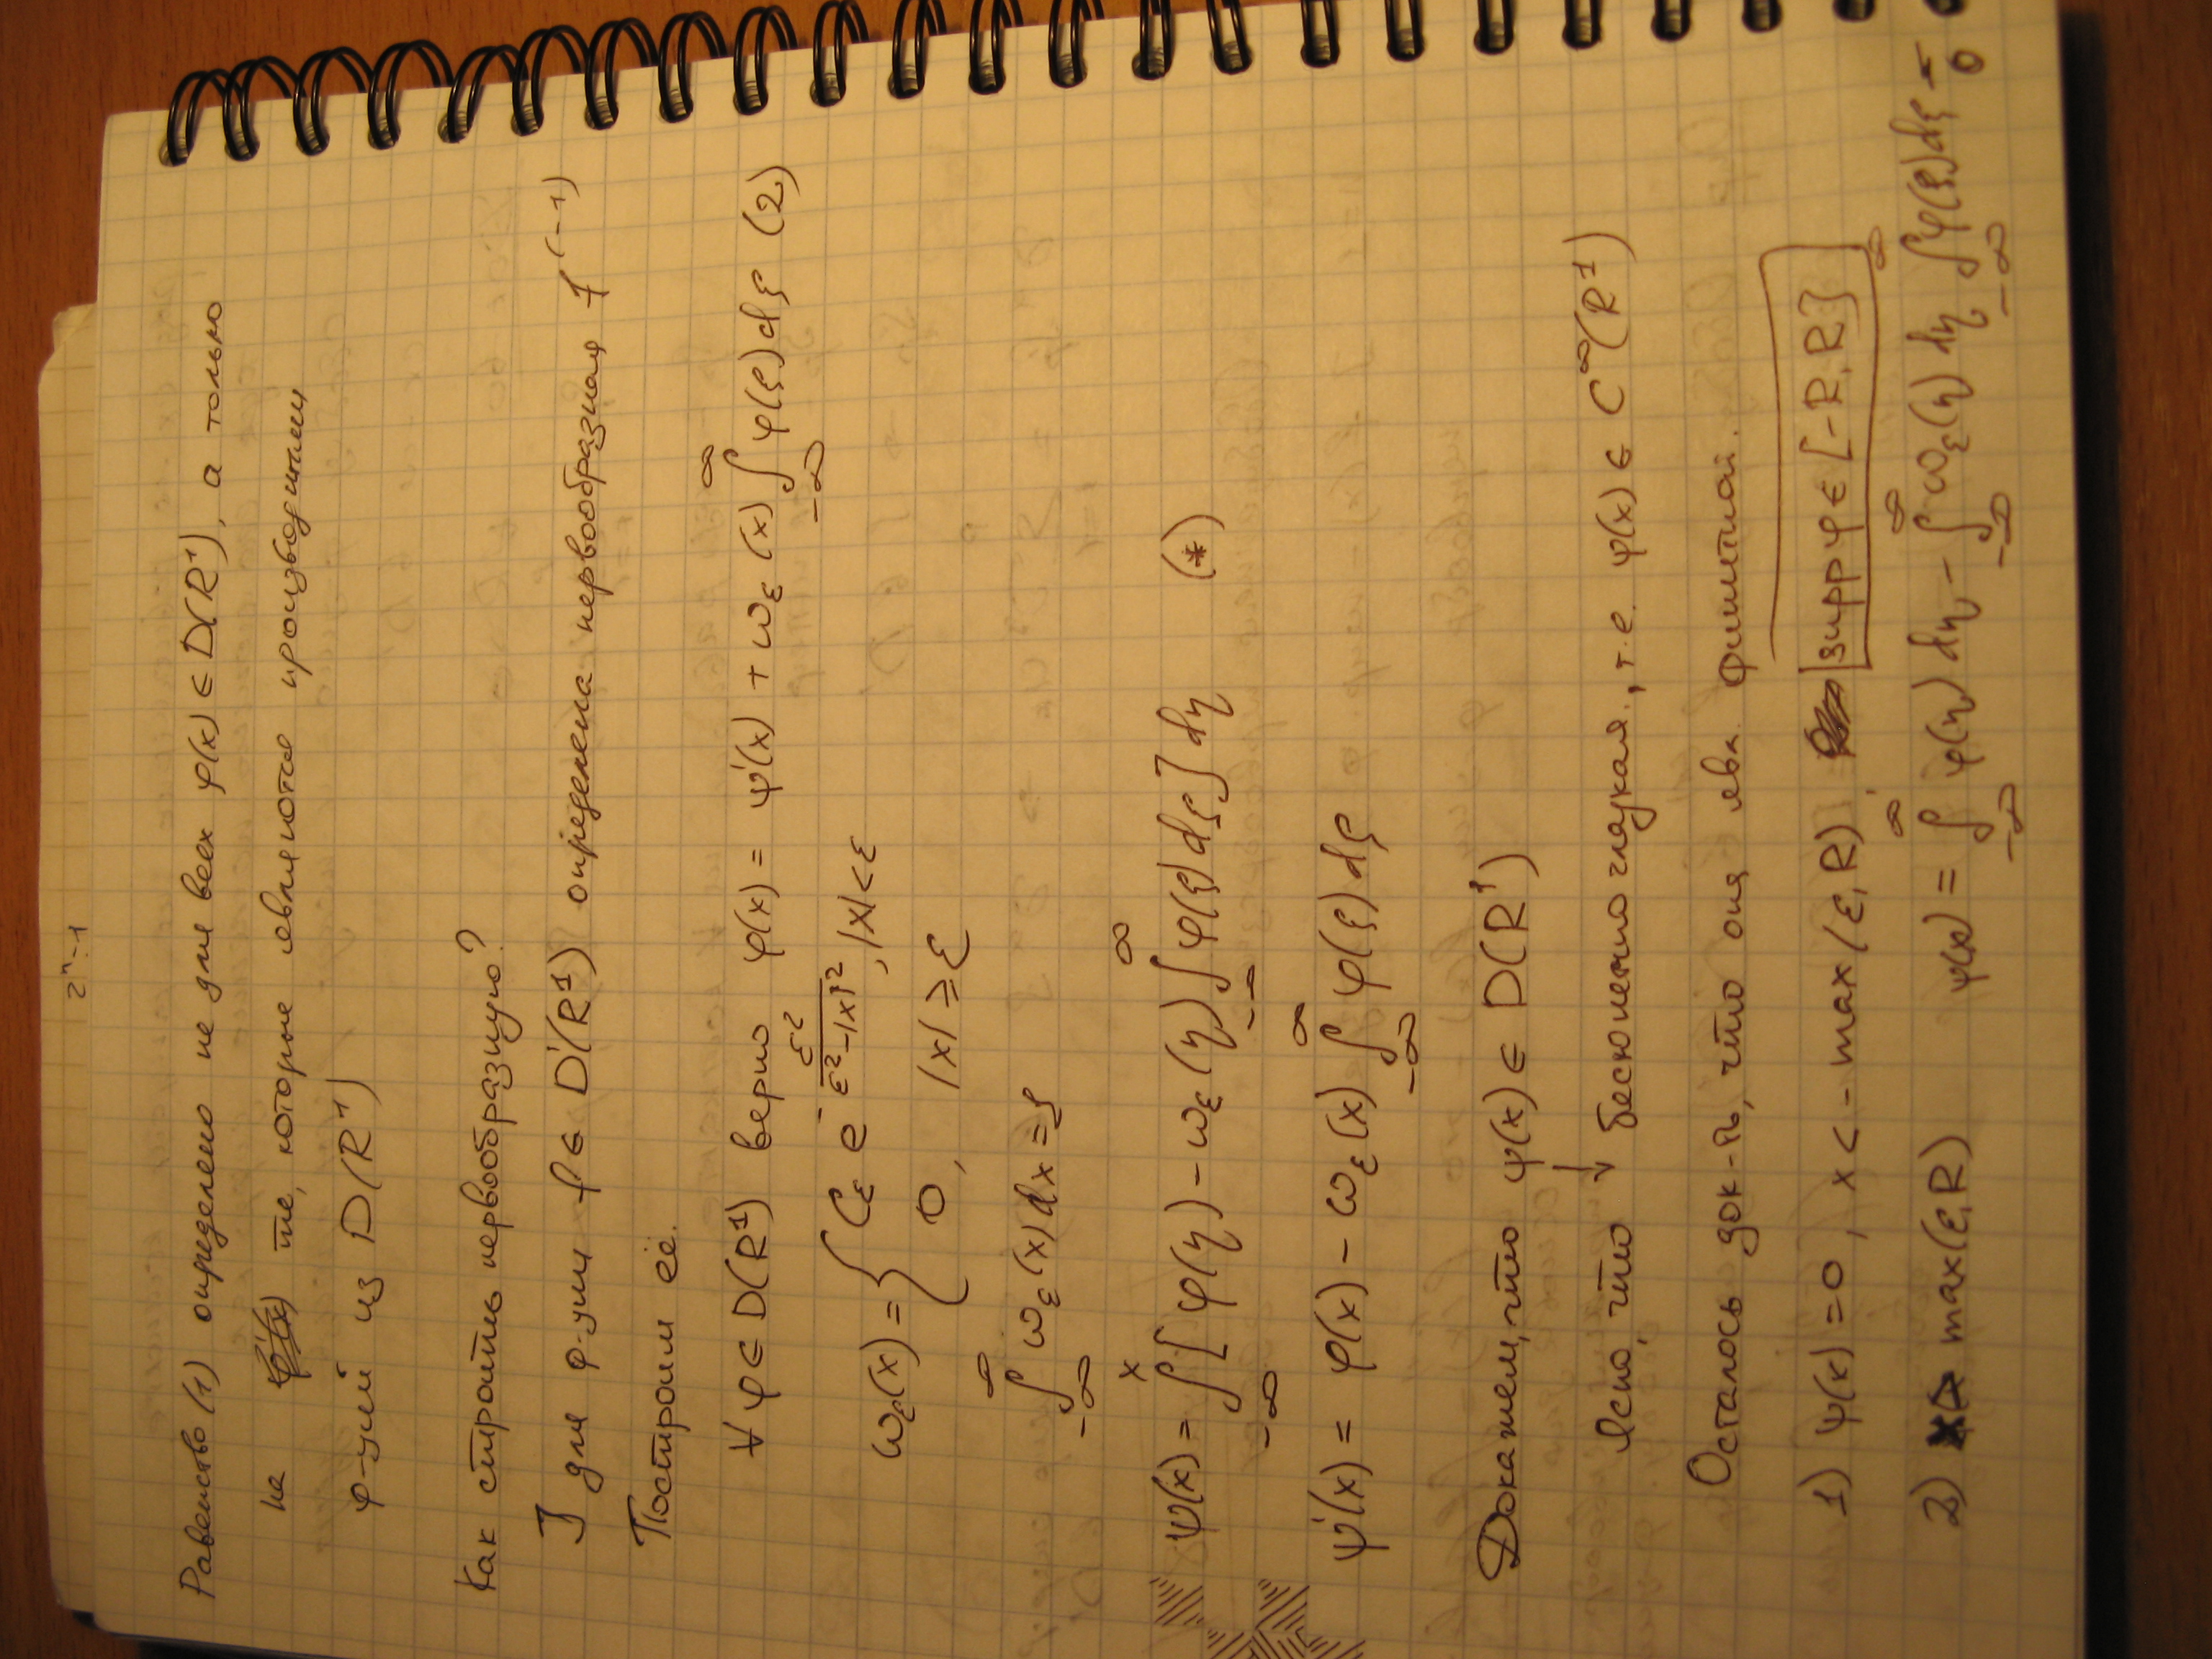 2ⁿ⁻¹
Равенство (1) определено не для всех φ(x) ∈ D(R¹), а только
на те, которые являются производными
ф-ций из D(R¹)
Как строить первообразную?
] для ф-ции f ∈ D'(R¹) определена первообразная f⁽⁻¹⁾
Построим её.
∀ φ ∈ D(R¹) верно φ(x) = ψ'(x) + ω_ε(x) ∫_{-∞}^{∞} φ(ξ)dξ (2)
ω_ε(x) = { C_ε e^{-ε²/(ε²-|x|²)}, |x|<ε
0, |x| ≥ ε
∫_{-∞}^{∞} ω_ε(x)dx = 1
ψ(x) = ∫_{-∞}^{x} [φ(η) - ω_ε(η) ∫_{-∞}^{∞} φ(ξ)dξ] dη (*)
ψ'(x) = φ(x) - ω_ε(x) ∫_{-∞}^{∞} φ(ξ)dξ
Докажем, что ψ(x) ∈ D(R¹)
Ясно, что ↓ бесконечно гладкая, т.е. ψ(x) ∈ C^∞(R¹)
Осталось док-ть, что она явл. финитной.
1) ψ(x) = 0, x < - max(ε, R), supp φ ∈ [-R, R]
2) max(ε, R) ψ(x) = ∫_{-∞}^{∞} φ(η)dη - ∫_{-∞}^{∞} ω_ε(η)dη ∫_{-∞}^{∞} φ(ξ)dξ = 0